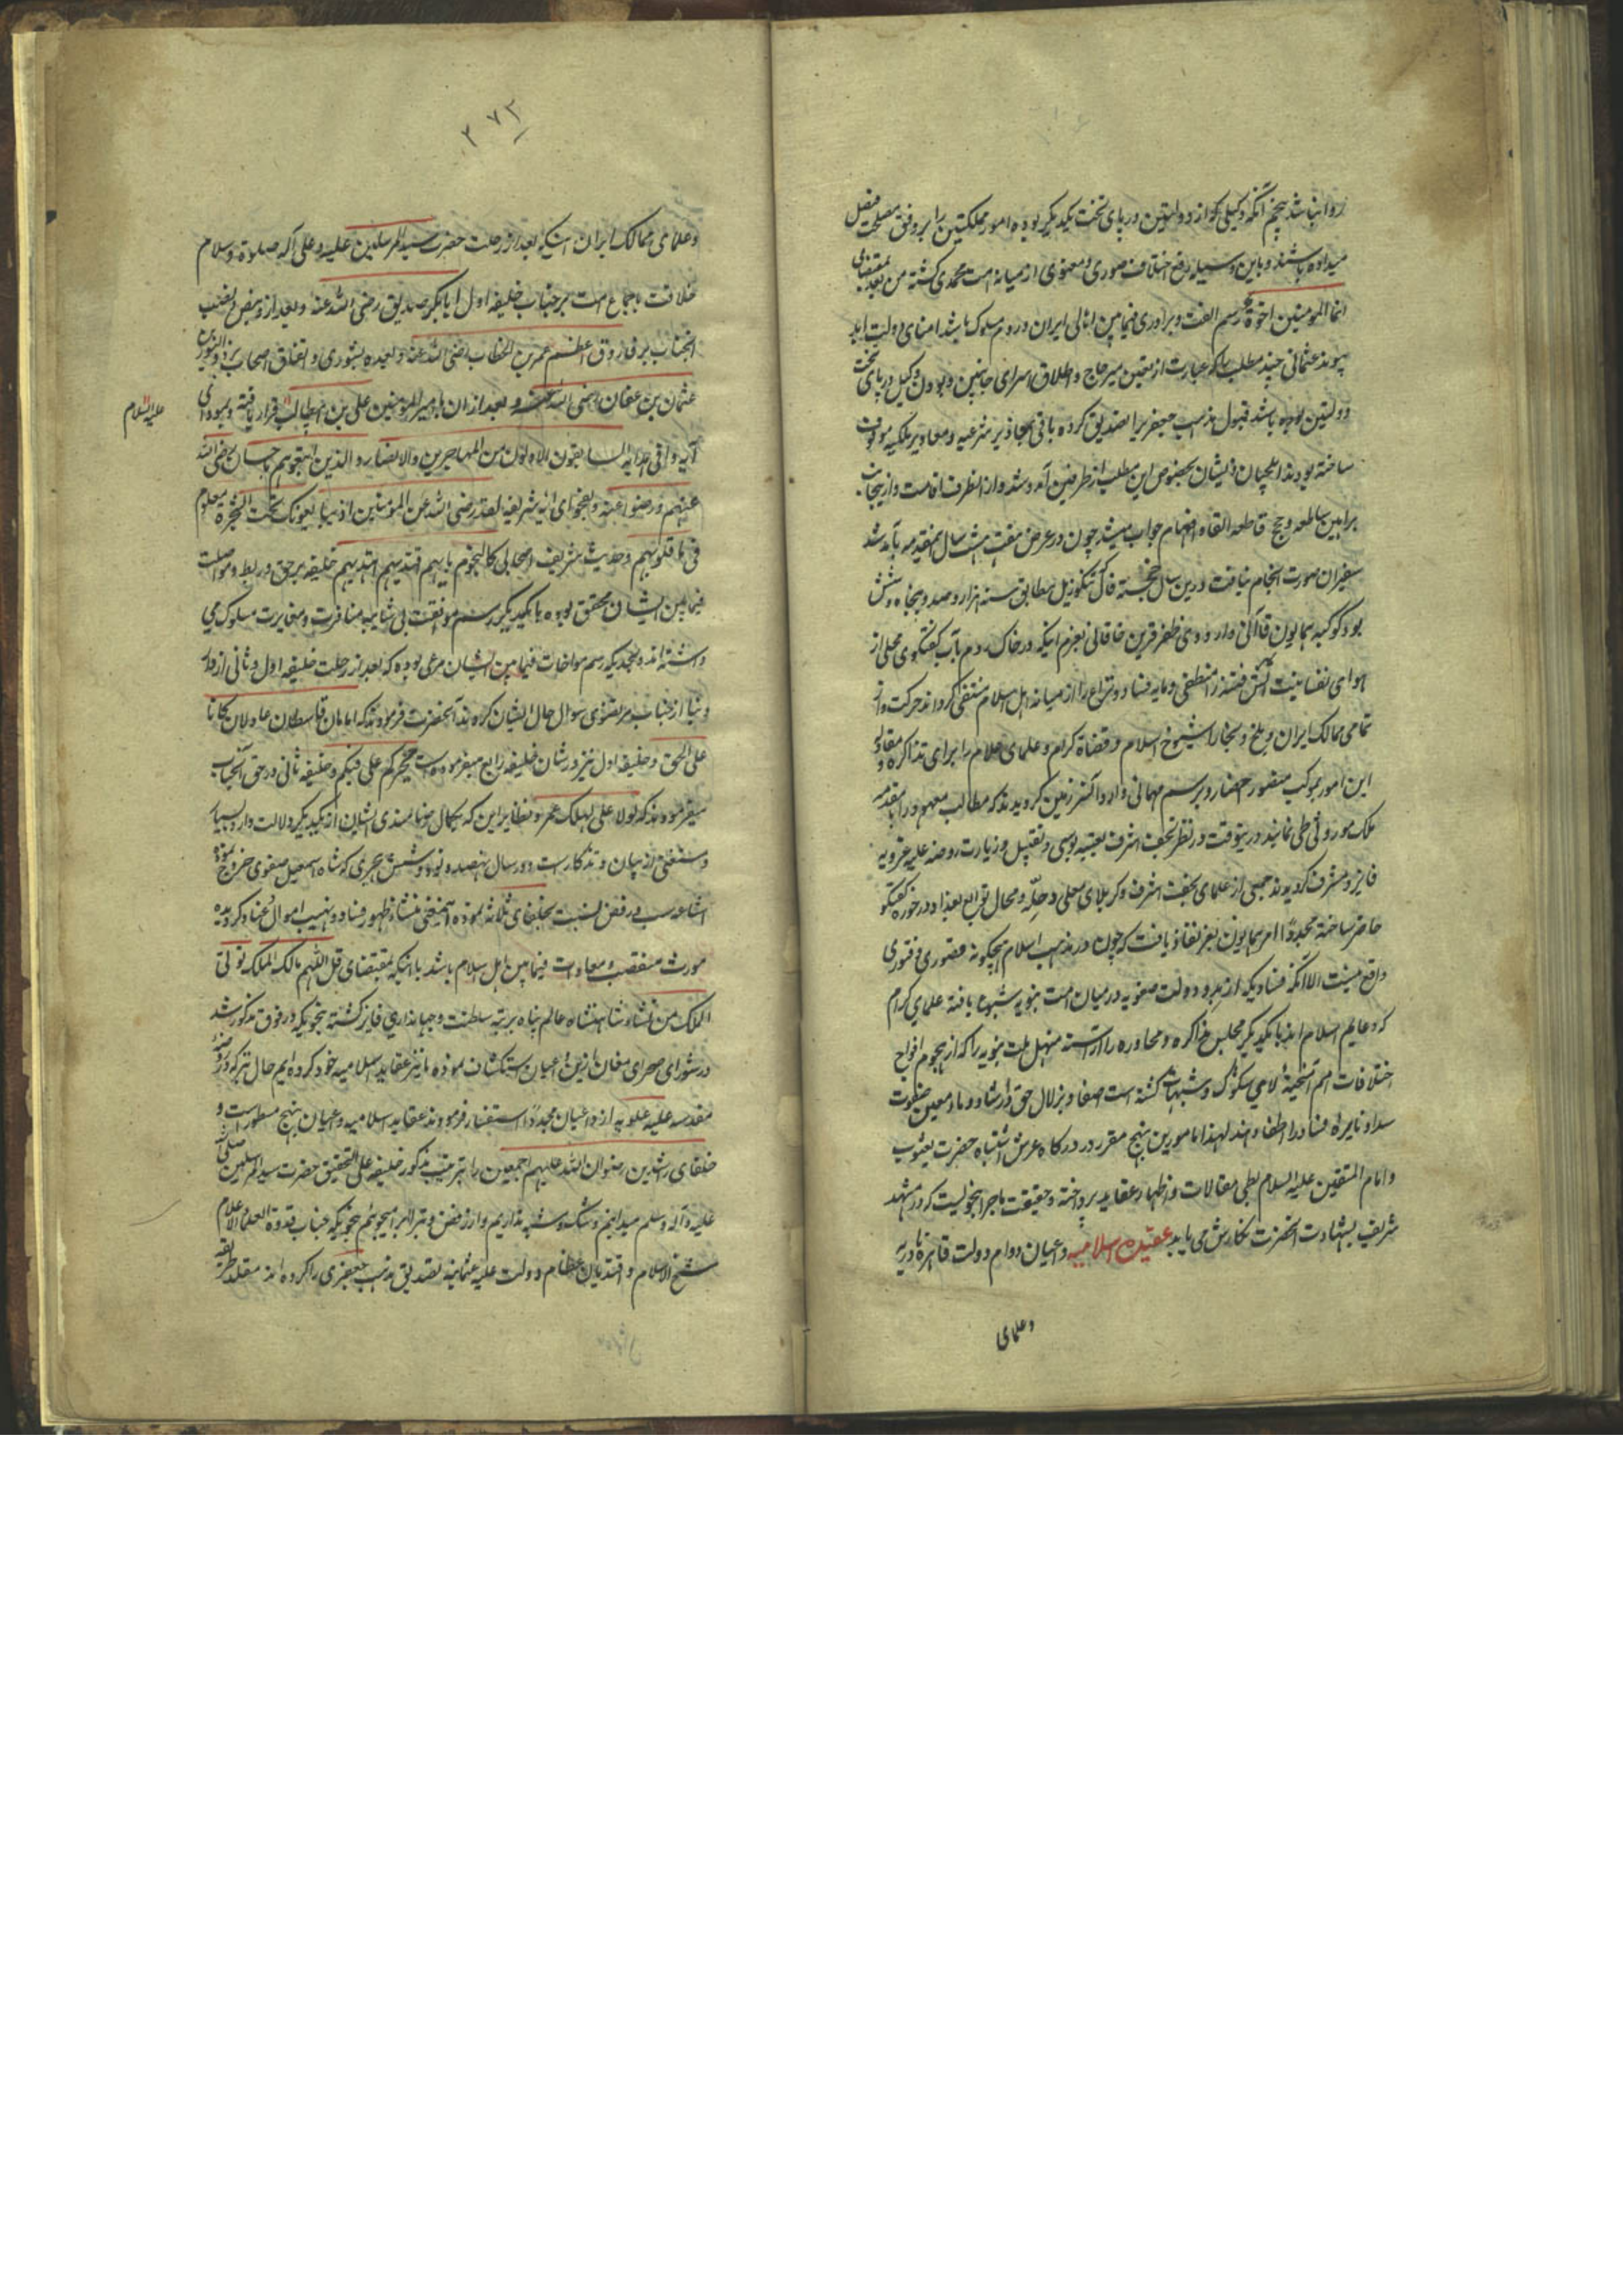 روا نباشد پنجم آنکه وکیلی که از دولتین در پای تخت یکدیگر بوده امور مملکتین را بر وفق مصلحت فیصل
میداده باشند و باین وسیله رفع اختلاف صوری و معنوی از میانه امت محمدی گشته من بعد بمقتضای
انما المومنین اخوة رسم الفت و برادری فیمابین اهالی ایران و روم مسلوک باشد امنای دولت ابد
پیوند عثمانی چند مطلب را که عبارت از تعیین میر حاج و اطلاق اسرای جانبین و بودن وکیل در پای تخت
دولتین بوده باشد قبول مذهب جعفریرا تصدیق کرده باقی بمحاذیر شرعیه و معاذیر ملکیه موقوف
ساخته بودند ایلچیان ذیشان بخصوص این مطلب از طرفین آمد و شد و از انطرف اقامت و از ینجانب
براهین ساطعه و حجج قاطعه القا و افهام جواب میشد چون در عرض هفت هشت سال بمقدمه بآمد شد
سفیران صورت انجام نیافت درین سال خجسته فال تنکوزئیل مطابق سنه هزار و صد و پنجاه و شش
بود کوکبه همایون قاآنی و اردوی ظفر قرین خاقانی بعزم اینکه در خاک روم باب گفتگوی محلی از
هوای نفسانیت آتش فتنه را منطفی و مایه فساد و نزاع را از میانه اهل اسلام منتفی گرداند حرکت و از
تمامی ممالک ایران و بلخ و بخارا شیوخ اسلام و قضاة کرام و علمای اعلام را برای مذاکره و مقاوله
این امور بموکب منصور احضار و برسم مهمانی وارد آنسرزمین گردیدند که مطالب معهوده را بمقدمه
ملک موروثی طی نمایند درینوقت در نظر نجف اشرف بعتبه بوسی و تقبیل و زیارت روضه علیه غرویه
فایز و مشرف گردیدند جمعی از علمای نجف اشرف و کربلای معلی و حله و محال توابع بغداد در خوره گفتگو
حاضر ساخته مجددا امر همایون بعز نفاذ یافت که چون در مذهب اسلام هیچگونه قصوری و فتوری
واقع نیست الا آنکه فسادیکه از بدو دولت صفویه در میان امت نبویه شیوع یافته علمای کرام
که دعایم اسلام اند با یکدیگر مجلس مذاکره و محاوره را آراسته منهل ملت نبویه را که از هجوم افواج
اختلافات امم الائمه لای شکوک و شبهات گشته است صفا و بزلال حق و ارشاد و ماء معین
سداد نایره فساد را اطفا دهند لهذا مامورین بنهج مقرر در درگاه عرش اشتباه حضرت یعسوب
و امام المتقین علیه السلام بطی مقالات و اظهار عقاید پرداخته و حقیقت ماجرا بنحویست که در مشهد
شریف بشهادت آنحضرت نگارش می یابد عقیده اسلامیه داعیان دوام دولت قاهره نادریه
و علمای
۲۷۳
و علمای ممالک ایران اینکه بعد از رحلت حضرت سید المرسلین علیه و علی آله صلوة و سلام
خلافت باجماع امت بر جناب خلیفه اول ابابکر صدیق رضی الله عنه و بعد از او بنص و نصب
آنجناب بر فاروق اعظم عمر بن الخطاب رضی الله عنه و بعده بشوری و اتفاق اصحاب بر ذو النورین
عثمان بن عفان رضی الله عنه و بعد از ان بامیر المومنین علی بن ابیطالب قرار یافته و بمودای
علیه السلام
آیه وافی هدایه السابقون الاولون من المهاجرین و الانصار و الذین اتبعوهم باحسان رضی الله
عنهم و رضوا عنه و بفحوای آیه شریفه لقد رضی الله عن المومنین اذ یبایعونک تحت الشجرة فعلم
فی ما قلوبهم و حدیث شریف اصحابی کالنجوم بایهم اقتدیتم اهتدیتم خلیفه بر حق و ربط و مواصلت
فیمابین ایشان محقق بوده با یکدیگر رسم موافقت بی شایبه منافرت و مغایرت مسلوک می
داشته اند و بحدیکه رسم مواخات فیمابین ایشان مرعی بوده که بعد از رحلت خلیفه اول و ثانی از دار
دنیا از جناب مرتضوی سوال حال ایشان کرده اند آنحضرت فرمودند که امامان قاسطان عادلان کانا
علی الحق و خلیفه اول نیز در شان خلیفه رابع میفرموده است بخیرکم علی فیکم و خلیفه ثانی در حق آنجناب
میفرمودند که لولا علی لهلک عمر و نظایر این که بکمال رضامندی ایشان از یکدیگر دلالت دارد بسیار
و مستغنی از بیان و تذکار است و در سال نهصد و نود و شش هجری که شاه اسمعیل صفوی خروج نموده
اشاعه سب و رفض نسبت بخلفای ثلاثه نموده اینمعنی منشاء ظهور فساد و نهب اموال و عناد گردیده
مورث منقصت و معادات فیمابین اهل اسلام باشد باینکه بمقتضای قل اللهم مالک الملک توتی
الملک من تشاء شاهنشاه عالم پناه بمرتبه سلطنت و جهانداری فایز گشته بنحویکه در فوق مذکور شد
در شورای صحرای مغان ازین داعیان استکشاف نموده ما نیز عقاید اسلامیه خود کرده ایم حال نیز که در روضه
مقدسه علیه علویه از داعیان مجددا استفسار فرمودند عقاید اسلامیه داعیان بنهج مسطور است و
خلفای راشدین رضوان الله علیهم اجمعین را بترتیب مذکور خلیفه علی التحقیق حضرت سید المرسلین صلی الله
علیه و آله و سلم میدانیم و شک و شبهه نداریم و از رفض و تبرا تبرا میجوئیم بنحویکه جناب قدوة العلماء الاعلام
شیخ الاسلام و افندیان عظام دولت علیه عثمانیه تصدیق مذهب جعفری را کرده اند مقلد طریقه